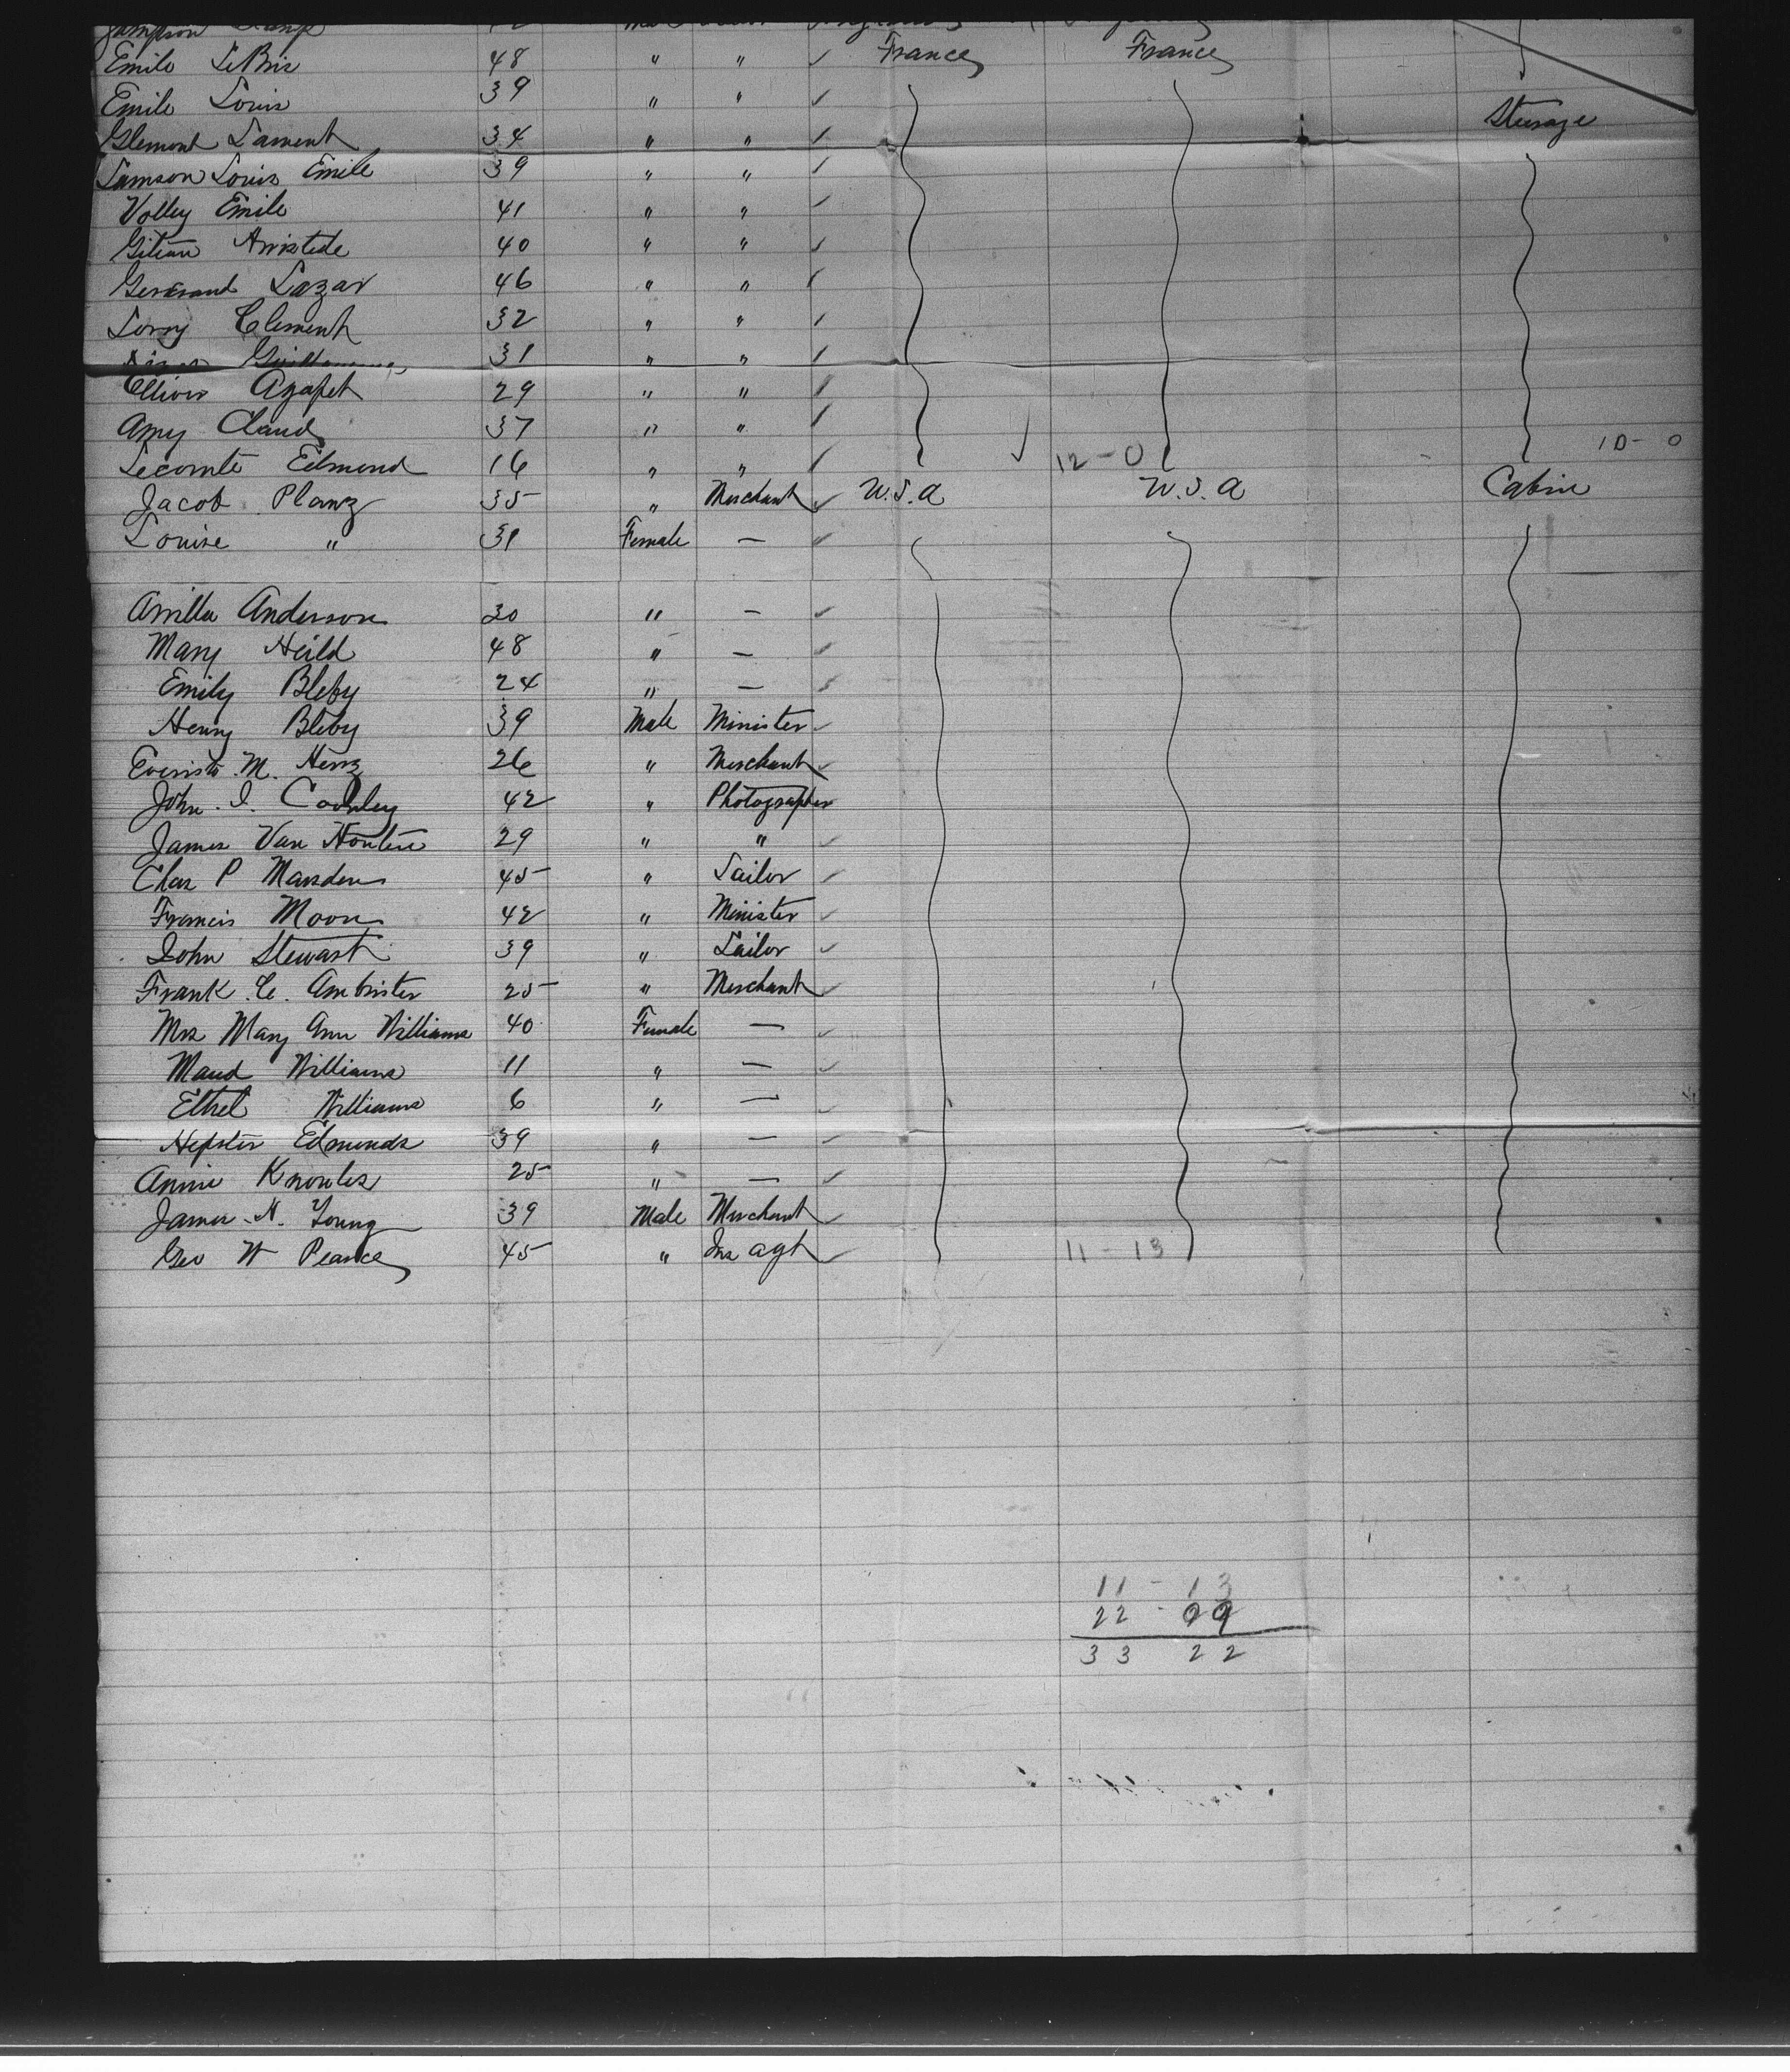 Emile LeBris 48 " " ✓ France France
Emile Louis 39 " " ✓
Steerage
Glemont Lament 34 " " ✓
Samson Louis Emile 39 " " ✓
Volley Emile 41 " " ✓
Aristide 40 " " ✓
Lazar 46 " " ✓
Lorry Clement 32 " " ✓
31 " " ✓
Ellivis Agapet 29 " " ✓
Amy Claud 37 " " ✓
Lecomte Edmond 16 " " ✓ 12-0 10-0
Jacob Planz 35 " Merchant ✓ U.S.A U.S.A Cabin
Louise " 31 Female — ✓
Anderson 30 " — ✓
Mary Heild 48 " — ✓
Emily Bleby 24 " — ✓
Henry Bleby 39 Male Minister ✓
Everisto M. Herz 26 " Merchant ✓
John. I. Cooley 42 " Photographer
James Van Houten 29 " " ✓
Chas P Marsden 45 " Sailor ✓
Francis Moon 42 " Minister ✓
John Stewart 39 " Sailor ✓
Frank. C. Ambrister 25 " Merchant ✓
Mrs Mary Ann Williams 40 Female — ✓
Maud Williams 11 " — ✓
Ethel Williams 6 " — ✓
Edmunds 39 " — ✓
Annie Knowles 25 " — ✓
James. N. Young 39 Male Merchant ✓
Geo W Pearce 45 " Ins agt ✓ 11-13
11 - 13
22 - 09
33 22